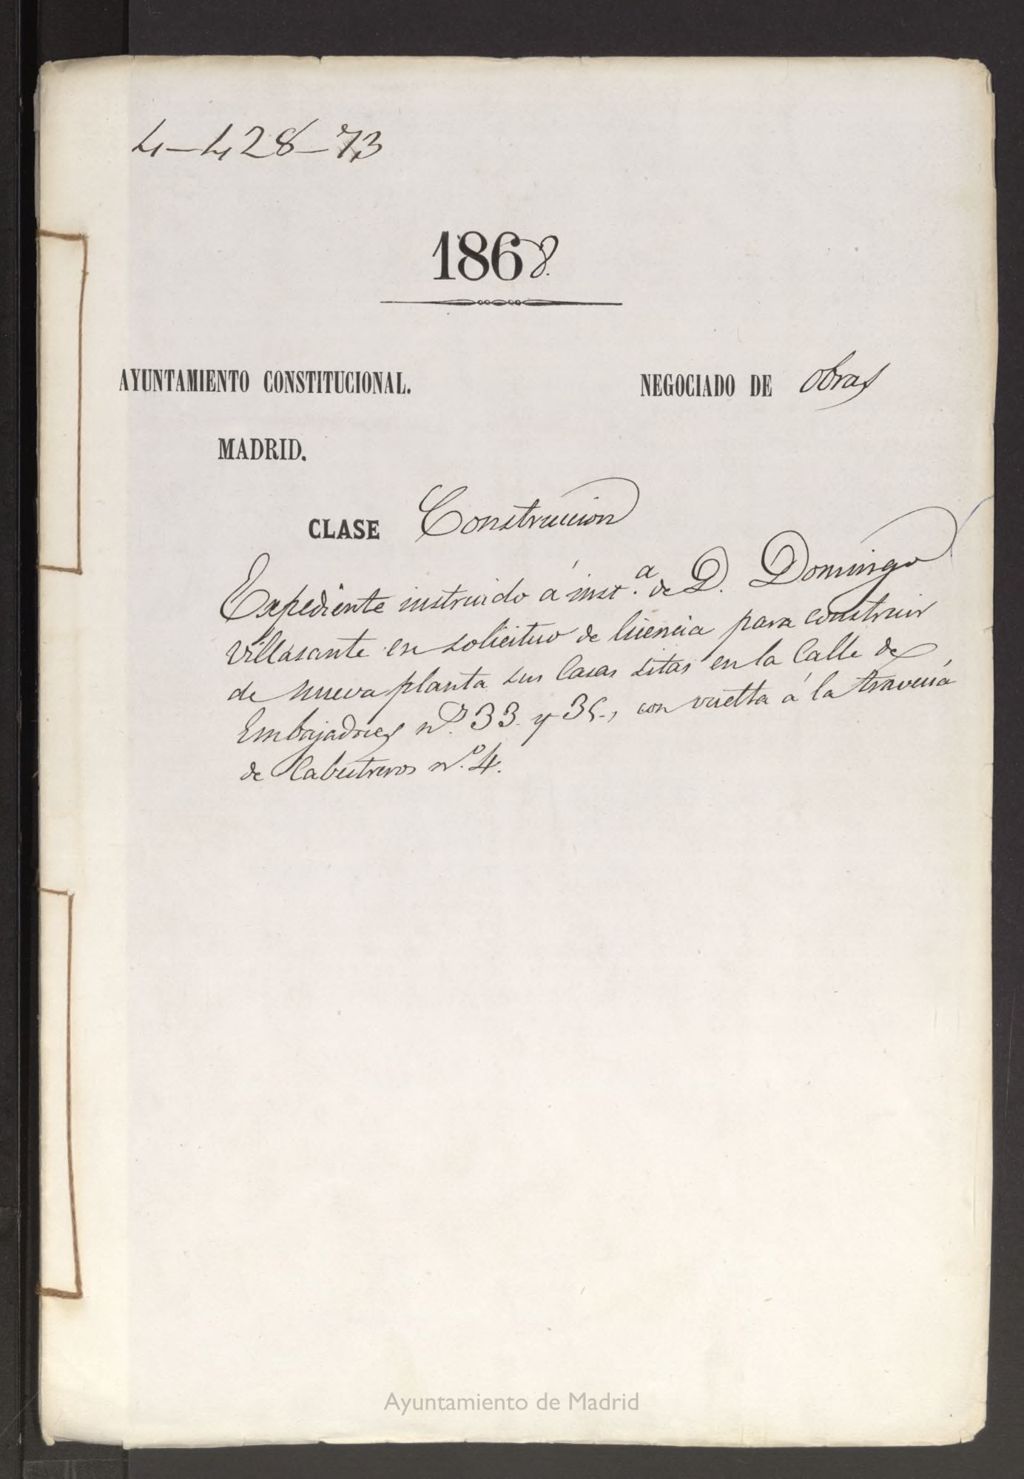 4-428-73
1868.
AYUNTAMIENTO CONSTITUCIONAL.
NEGOCIADO DE Obras
MADRID.
CLASE Construccion
Expediente instruido á inst.ª de D. Domingo
Villasante en solicitud de licencia para construir
de nueva planta sus Casas sitas en la Calle de
Embajadores nº. 33 y 35, con vuelta á la travesia
de Cabestreros nº. 4.
Ayuntamiento de Madrid